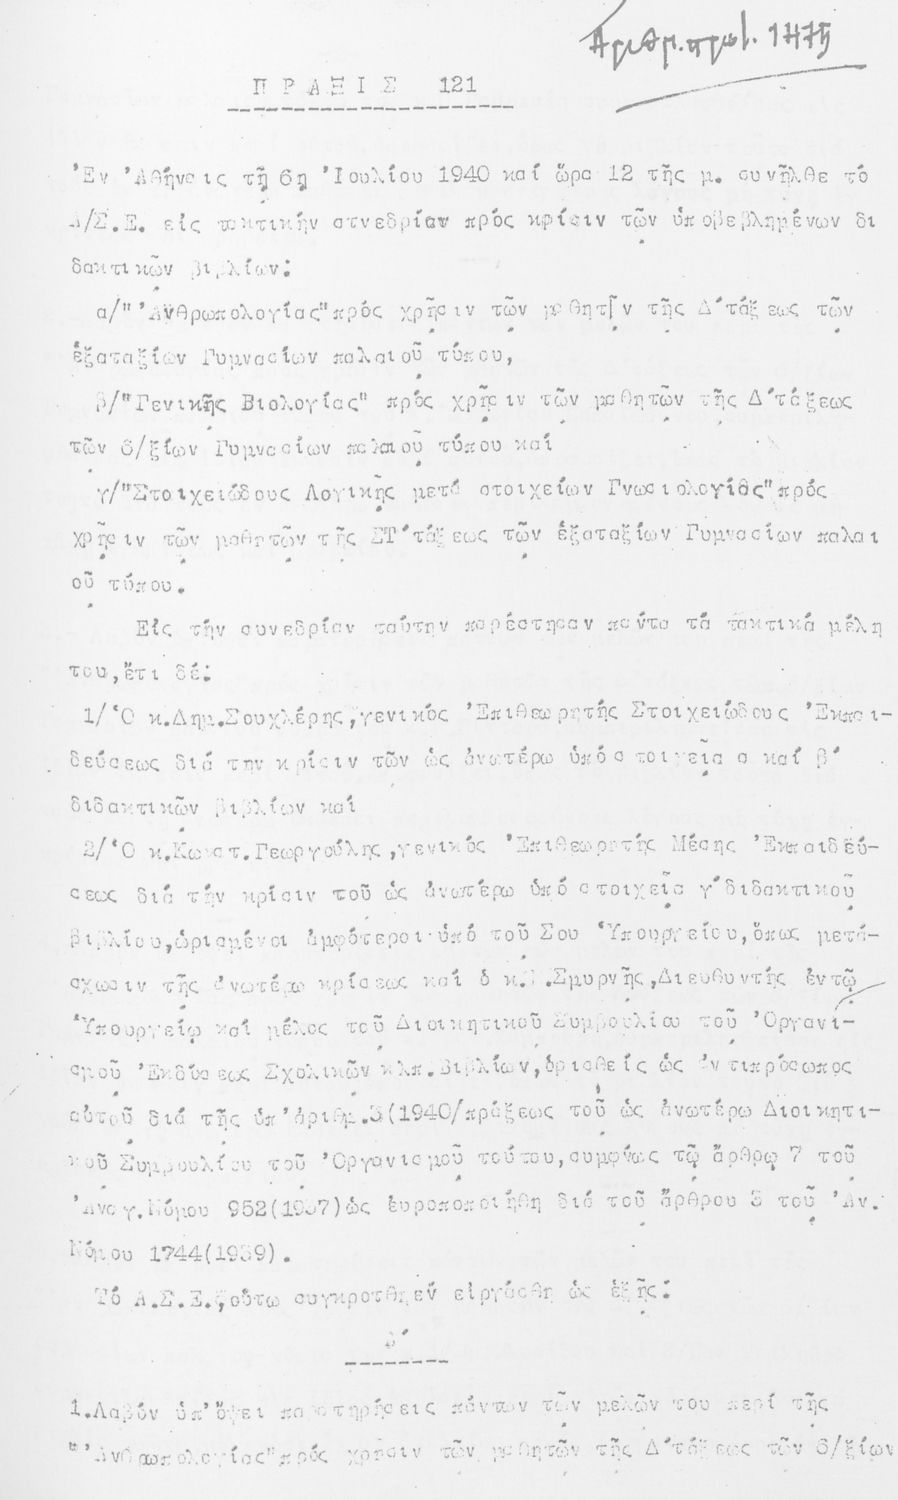 Αριθμ.πρωτ. 1475
ΠΡΑΞΙΣ 121
Ἐν Ἀθήναις τῇ 6ῃ Ἰουλίου 1940 καί ὥρα 12 τῆς μ. συνῆλθε τό
Α/Σ.Ε. εἰς τακτικήν συνεδρίαν πρός κρίσιν τῶν ὑποβεβλημένων δι
δακτικῶν βιβλίων:
α/"Ἀνθρωπολογίας" πρός χρῆσιν τῶν μαθητῶν τῆς Δ΄τάξεως τῶν
ἑξαταξίων Γυμνασίων παλαιοῦ τύπου,
β/"Γενικῆς Βιολογίας" πρός χρῆσιν τῶν μαθητῶν τῆς Δ΄τάξεως
τῶν 6/ξίων Γυμνασίων παλαιοῦ τύπου καί
γ/"Στοιχειώδους Λογικῆς μετά στοιχείων Γνωσιολογίας" πρός
χρῆσιν τῶν μαθητῶν τῆς ΣΤ΄τάξεως τῶν ἑξαταξίων Γυμνασίων παλαι
οῦ τύπου.
Εἰς τήν συνεδρίαν ταύτην παρέστησαν πάντα τά τακτικά μέλη
του, ἔτι δέ:
1/Ὁ κ.Δημ.Σουχλέρης, γενικός Ἐπιθεωρητής Στοιχειώδους Ἐκπαι-
δεύσεως διά την κρίσιν τῶν ὡς ἀνωτέρω ὑπό στοιχεῖα α καί β΄
διδακτικῶν βιβλίων καί
2/Ὁ κ.Κωνστ.Γεωργούλης, γενικός Ἐπιθεωρητής Μέσης Ἐκπαιδεύ-
σεως διά τήν κρίσιν τοῦ ὡς ἀνωτέρω ὑπό στοιχεῖα γ΄διδακτικοῦ
βιβλίου, ὡρισμένοι ἀμφότεροι ὑπό τοῦ Σου Ὑπουργείου, ὅπως μετά-
σχωσιν τῆς ἀνωτέρω κρίσεως καί ὁ κ. Σμυρνῆς, Διευθυντής ἐντῷ
Ὑπουργείῳ καί μέλος τοῦ Διοικητικοῦ Συμβουλίου τοῦ Ὀργανι-
σμοῦ Ἐκδόσεως Σχολικῶν κλπ.Βιβλίων, ὁρισθείς ὡς ἀντιπρόσωπος
αὐτοῦ διά τῆς ὑπ'ἀριθμ.3(1940/πράξεως τοῦ ὡς ἀνωτέρω Διοικητι-
κοῦ Συμβουλίου τοῦ Ὀργανισμοῦ τούτου, συμφώνως τῷ ἄρθρῳ 7 τοῦ
Ἀναγ.Νόμου 952(1937)ὡς ἐτροποποιήθη διά τοῦ ἄρθρου 3 τοῦ Ἀν.
Νόμου 1744(1939).
Τό Α.Σ.Ε., οὕτω συγκροτηθέν εἰργάσθη ὡς ἑξῆς:
1.Λαβόν ὑπ'ὄψει παρατηρήσεις πάντων τῶν μελῶν του περί τῆς
"Ἀνθρωπολογίας" πρός χρῆσιν τῶν μαθητῶν τῆς Δ΄τάξεως τῶν 6/ξίων